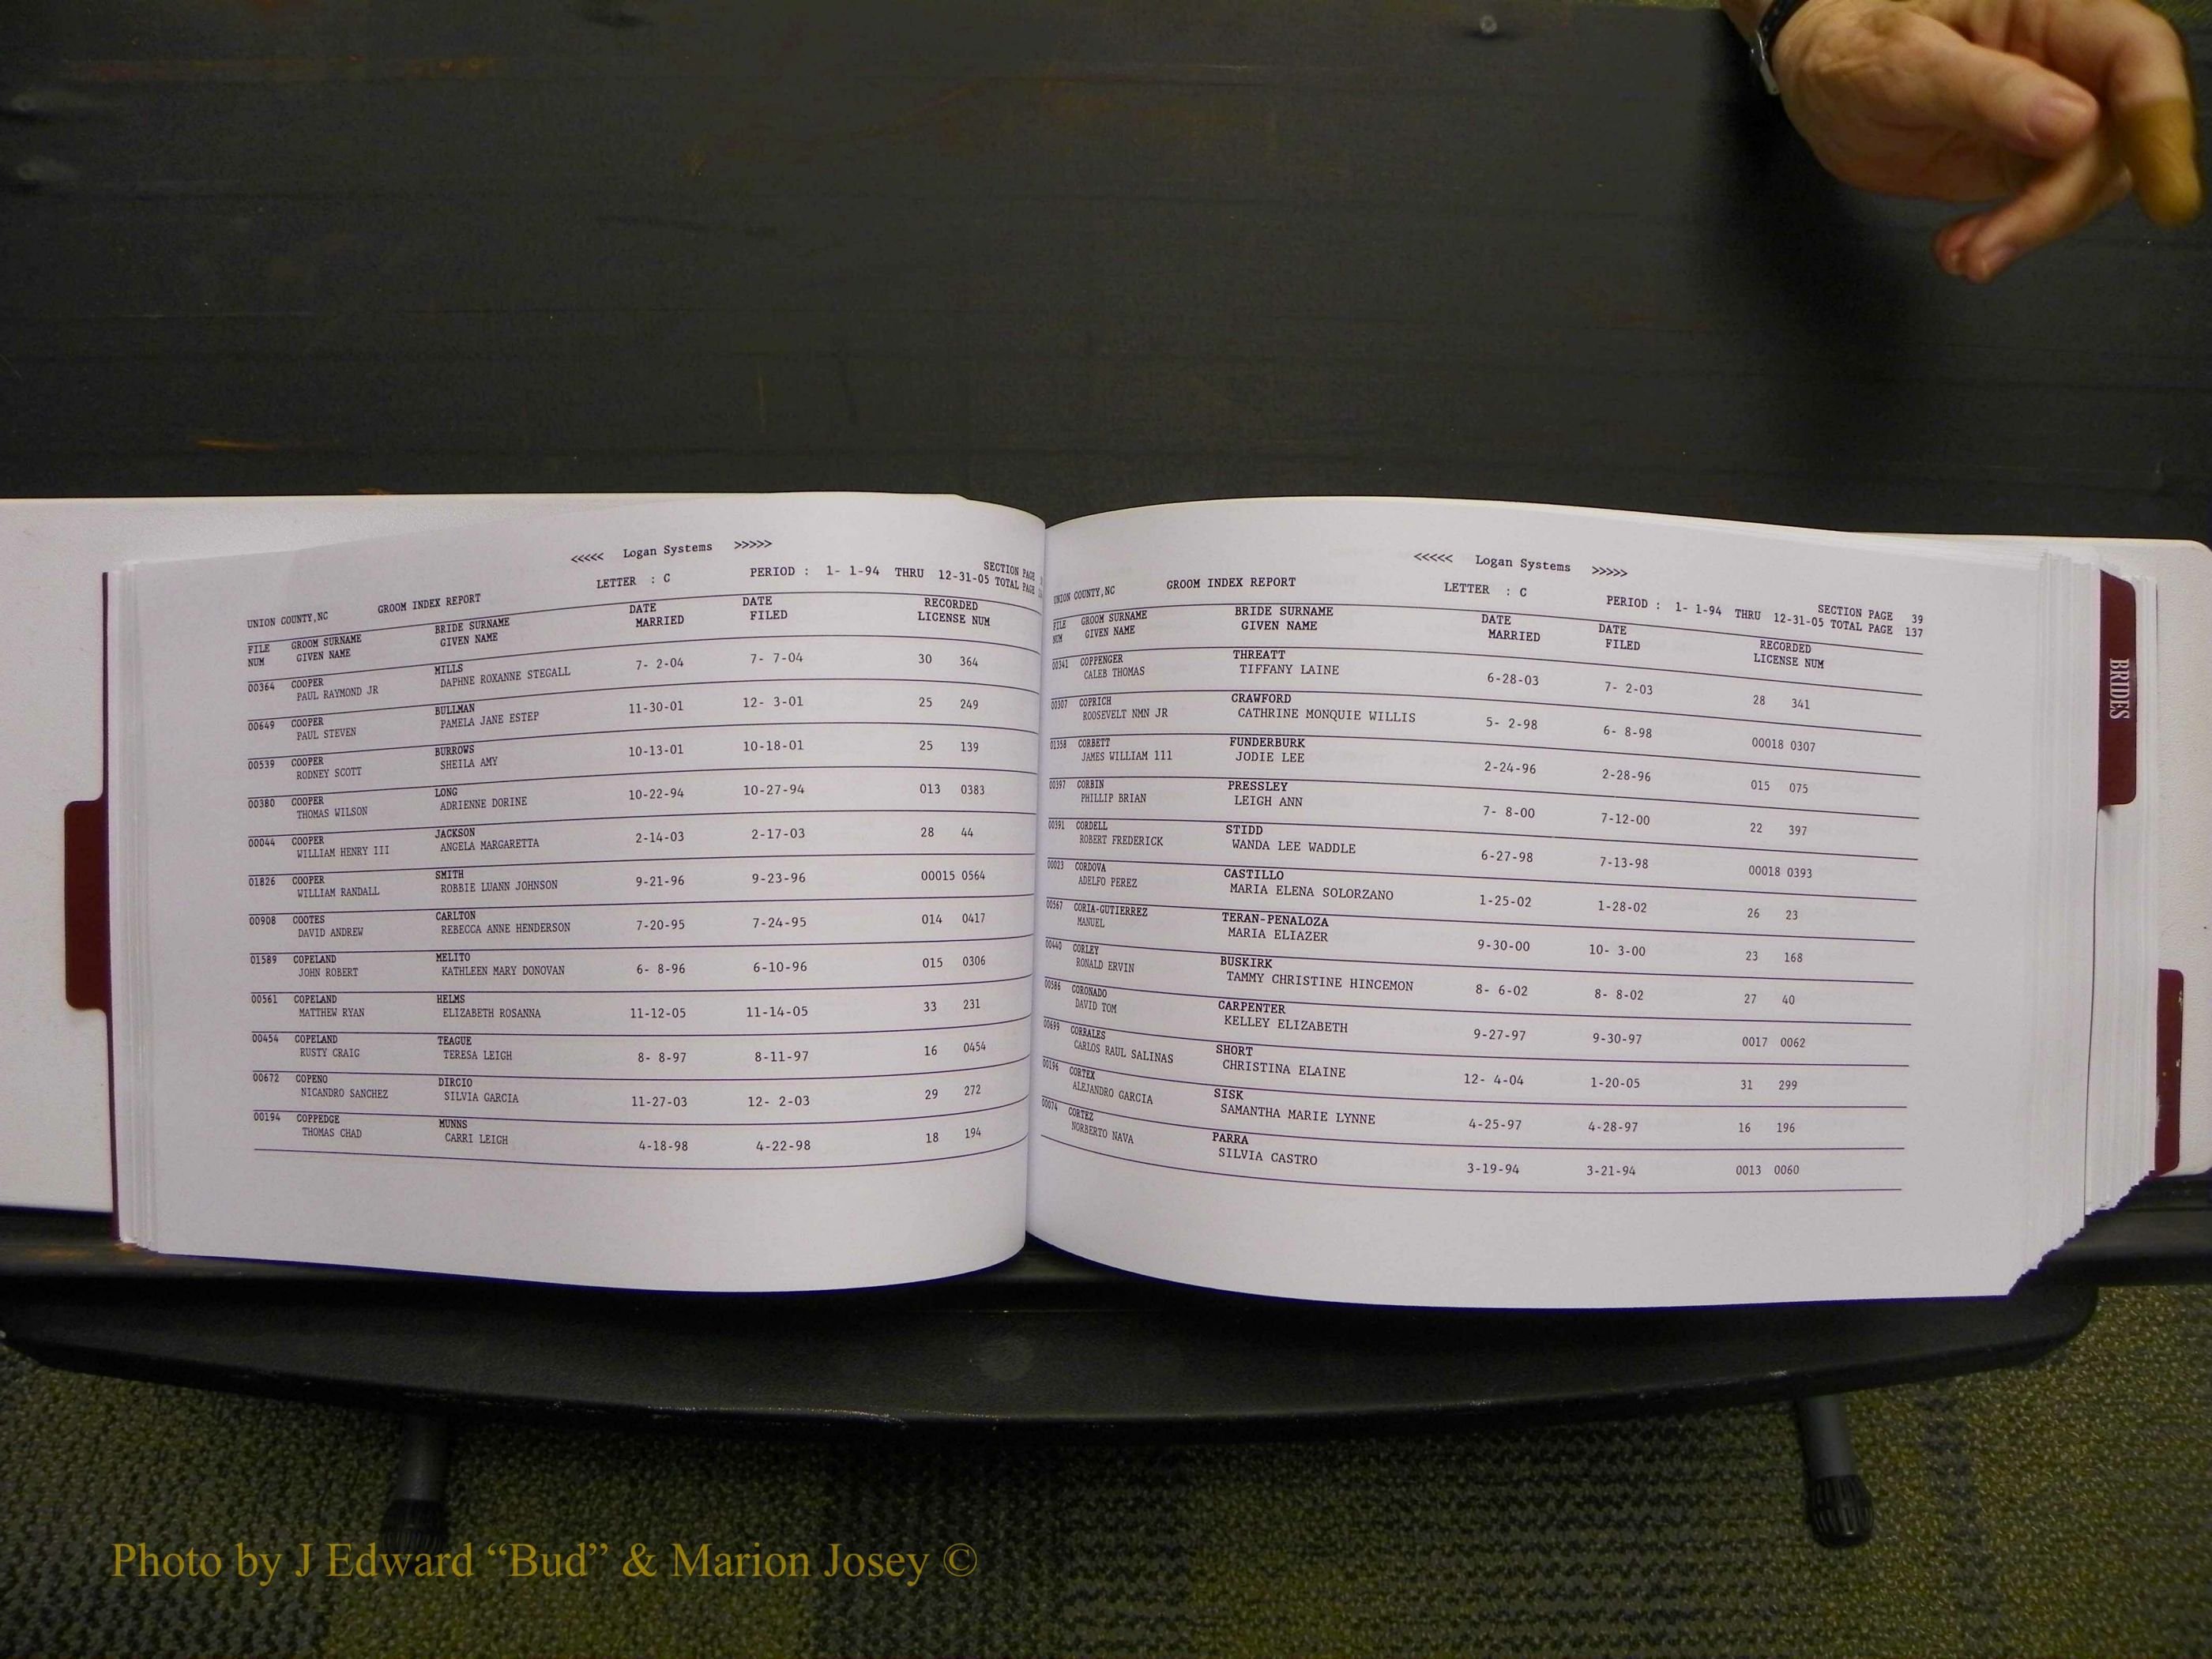 <<<<< Logan Systems >>>>>
UNION COUNTY,NC GROOM INDEX REPORT LETTER : C PERIOD : 1- 1-94 THRU 12-31-05 SECTION PAGE
TOTAL PAGE
FILE GROOM SURNAME BRIDE SURNAME DATE DATE RECORDED
NUM GIVEN NAME GIVEN NAME MARRIED FILED LICENSE NUM
00364 COOPER MILLS 7- 2-04 7- 7-04 30 364
PAUL RAYMOND JR DAPHNE ROXANNE STEGALL
00649 COOPER BULLMAN 11-30-01 12- 3-01 25 249
PAUL STEVEN PAMELA JANE ESTEP
00539 COOPER BURROWS 10-13-01 10-18-01 25 139
RODNEY SCOTT SHEILA AMY
00380 COOPER LONG 10-22-94 10-27-94 013 0383
THOMAS WILSON ADRIENNE DORINE
00044 COOPER JACKSON 2-14-03 2-17-03 28 44
WILLIAM HENRY III ANGELA MARGARETTA
01826 COOPER SMITH 9-21-96 9-23-96 00015 0564
WILLIAM RANDALL ROBBIE LUANN JOHNSON
00908 COOTES CARLTON 7-20-95 7-24-95 014 0417
DAVID ANDREW REBECCA ANNE HENDERSON
01589 COPELAND MELITO 6- 8-96 6-10-96 015 0306
JOHN ROBERT KATHLEEN MARY DONOVAN
00561 COPELAND HELMS 11-12-05 11-14-05 33 231
MATTHEW RYAN ELIZABETH ROSANNA
00454 COPELAND TEAGUE 8- 8-97 8-11-97 16 0454
RUSTY CRAIG TERESA LEIGH
00672 COPENO DIRCIO 11-27-03 12- 2-03 29 272
NICANDRO SANCHEZ SILVIA GARCIA
00194 COPPEDGE MUNNS 4-18-98 4-22-98 18 194
THOMAS CHAD CARRI LEIGH
<<<<< Logan Systems >>>>>
UNION COUNTY,NC GROOM INDEX REPORT LETTER : C PERIOD : 1- 1-94 THRU 12-31-05 SECTION PAGE 39
TOTAL PAGE 137
FILE GROOM SURNAME BRIDE SURNAME DATE DATE RECORDED
NUM GIVEN NAME GIVEN NAME MARRIED FILED LICENSE NUM
00341 COPPENGER THREATT 6-28-03 7- 2-03 28 341
CALEB THOMAS TIFFANY LAINE
00307 COPRICH CRAWFORD 5- 2-98 6- 8-98 00018 0307
ROOSEVELT NMN JR CATHRINE MONQUIE WILLIS
01358 CORBETT FUNDERBURK 2-24-96 2-28-96 015 075
JAMES WILLIAM 111 JODIE LEE
00397 CORBIN PRESSLEY 7- 8-00 7-12-00 22 397
PHILLIP BRIAN LEIGH ANN
00391 CORDELL STIDD 6-27-98 7-13-98 00018 0393
ROBERT FREDERICK WANDA LEE WADDLE
00023 CORDOVA CASTILLO 1-25-02 1-28-02 26 23
ADELFO PEREZ MARIA ELENA SOLORZANO
00567 CORIA-GUTIERREZ TERAN-PENALOZA 9-30-00 10- 3-00 23 168
MANUEL MARIA ELIAZER
00440 CORLEY BUSKIRK 8- 6-02 8- 8-02 27 40
RONALD ERVIN TAMMY CHRISTINE HINCEMON
00586 CORONADO CARPENTER 9-27-97 9-30-97 0017 0062
DAVID TOM KELLEY ELIZABETH
00699 CORRALES SHORT 12- 4-04 1-20-05 31 299
CARLOS RAUL SALINAS CHRISTINA ELAINE
00196 CORTEX SISK 4-25-97 4-28-97 16 196
ALEJANDRO GARCIA SAMANTHA MARIE LYNNE
00074 CORTEZ PARRA 3-19-94 3-21-94 0013 0060
NORBERTO NAVA SILVIA CASTRO
BRIDES
Photo by J Edward “Bud” & Marion Josey ©